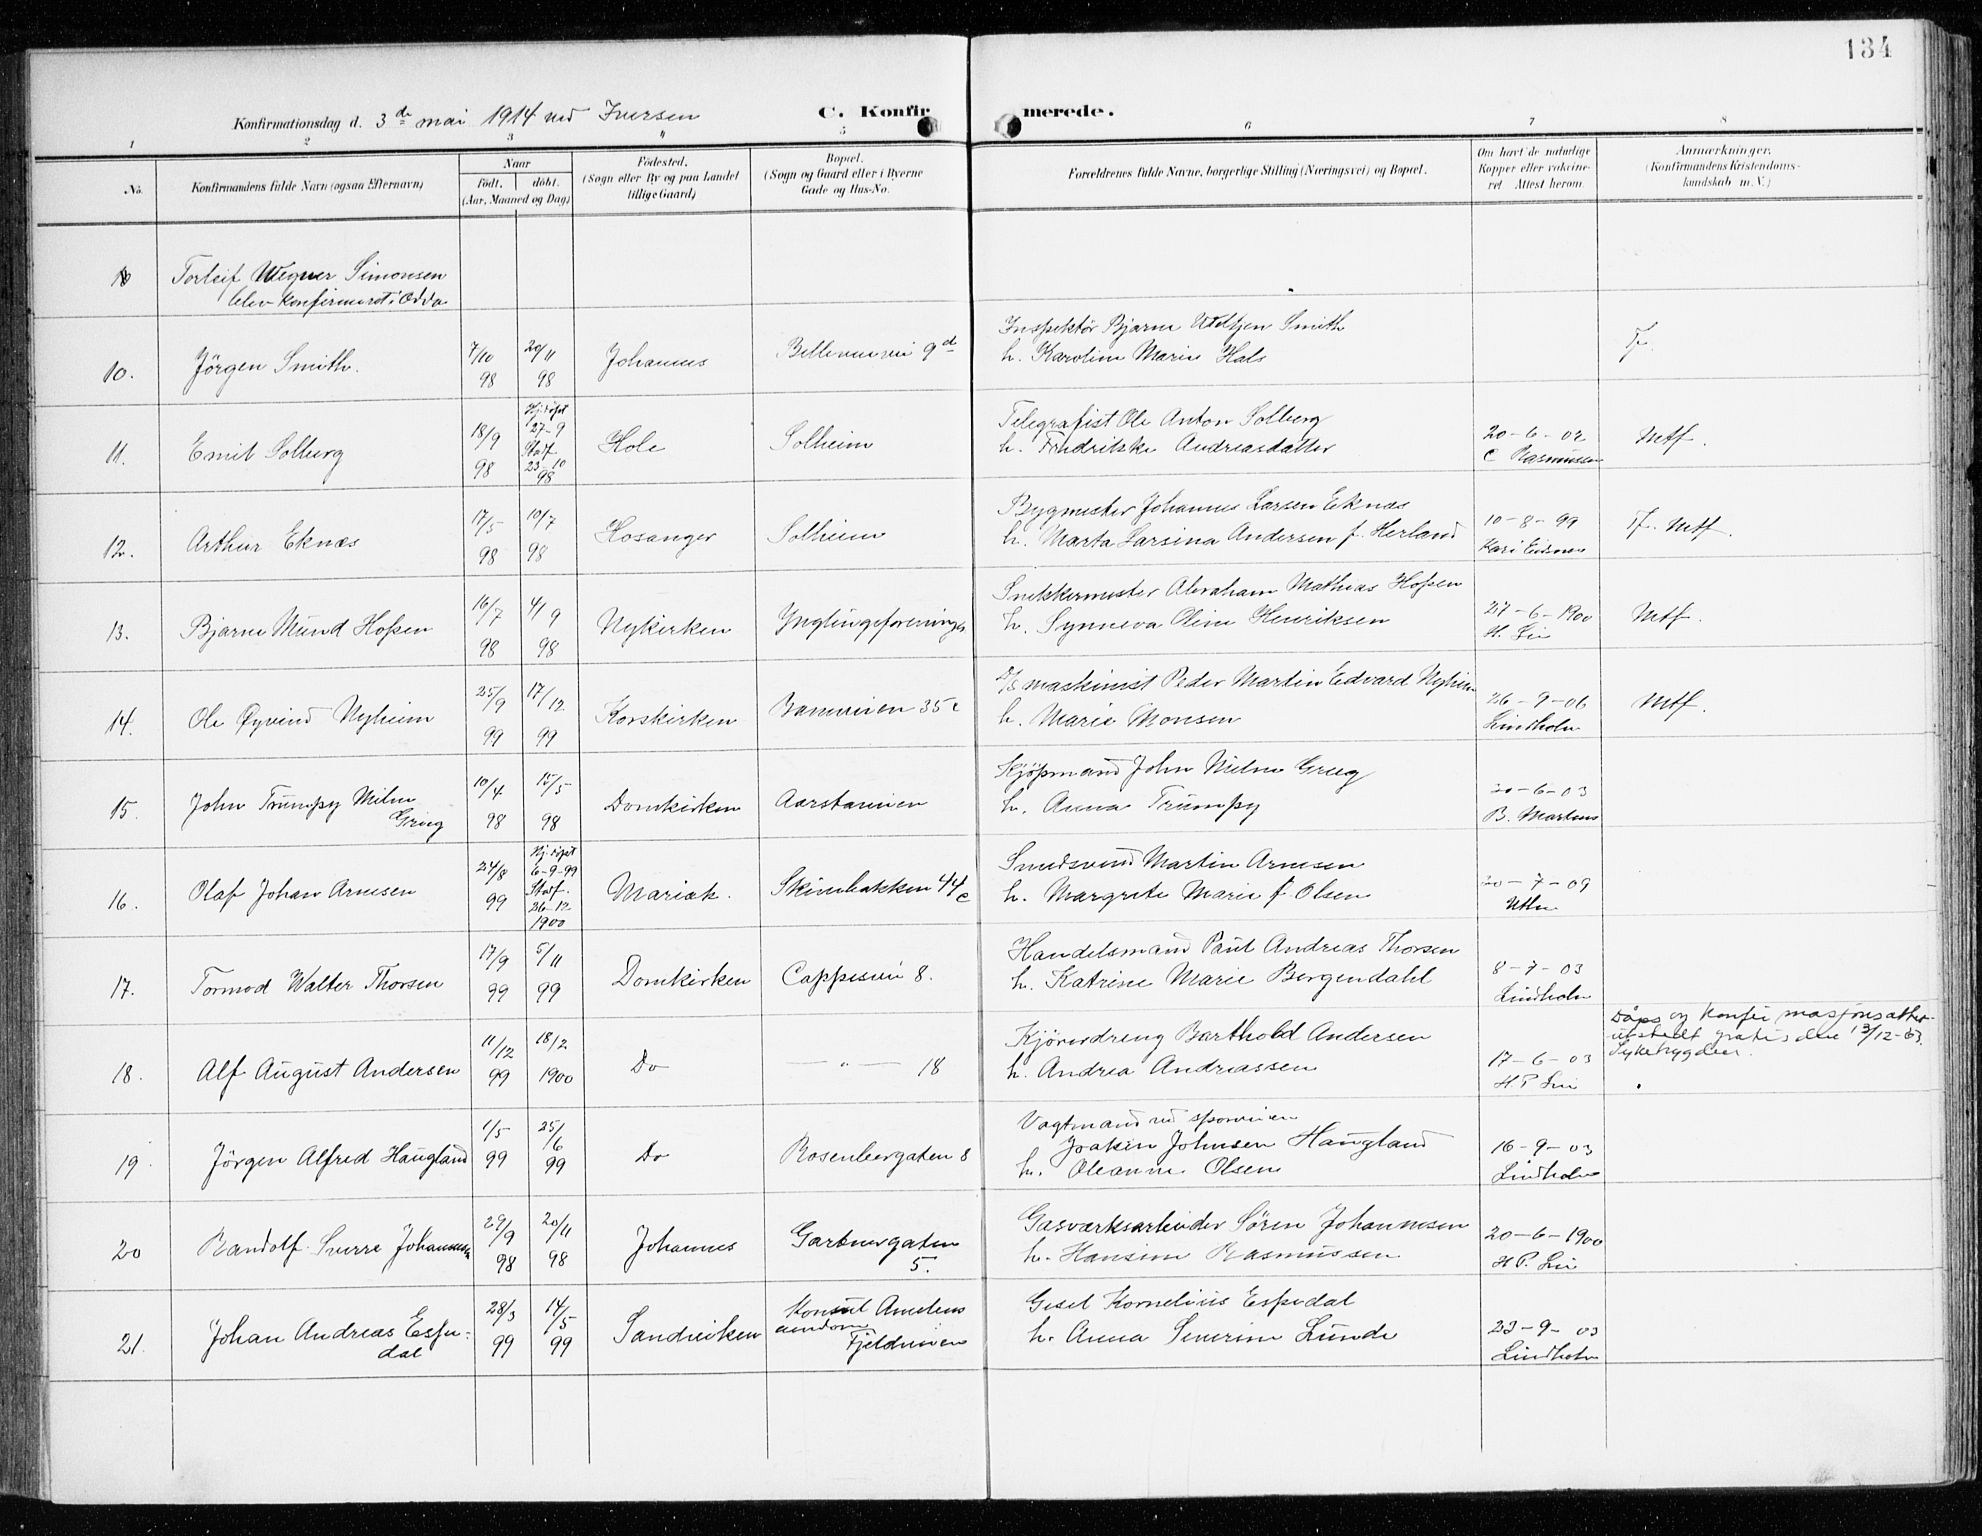 134
Konfirmationsdag d. 3de mai 1914 ved Iversen
C. Konfirmerede.
1 2 3 4 5 6 7 8
No.
Konfirmandens fulde Navn (ogsaa Efternavn)
Naar
født. døbt.
(Aar, Maaned og Dag)
Fødested.
(Sogn eller By og paa Landet
tillige Gaard)
Bopæl.
(Sogn og Gaard eller i Byerne
Gade og Hus-No.
Forældrenes fulde Navne, borgerlige Stilling (Næringsvei) og Bopæl.
Om havt de naturlige
Kopper eller vakcine-
ret Attest herom.
Anmærkninger.
(Konfirmandens Kristendoms-
kundskab m. V.)
Torleif Wegner Simonsen
blev konfirmeret i Odda
10. Jörgen Smith. 7/10 98 20/11 98 Johannes 9d
Inspektör Bjarne Smith
h. Karoline Marie Hals
Tf.
11. Emil Solberg 18/9 98 Hj.döpt 27-9 Stadf. 23-10 98 Hole Solheim
Telegrafist Ole Anton Solberg
h. Fredrikke Andreasdatter
20-6-02
C Rasmussen
Mtf.
12. Arthur Eknæs 17/5 98 10/7 98 Hosanger Solheim
Bygmester Johannes Larsen Eknæs
h. Marta Larsina Andersen f. Herland
10-8-99
Tf. Mtf.
13. Bjarne Mund Hopen 16/7 98 4/9 98 Nykirken Ynglingeforeningen
Snekkermester Abraham Mathias Hopen
h. Synneva Oline Henriksen
27-6-1900
H. Lie
Mtf.
14. Ole Øyvind Nyheim 25/9 99 17/12 99 Korskirken 35c
D/s maskinist Peder Martin Edvard Nyheim
h. Marie Monsen
26-9-06
Lindholm
Mtf.
15. John Trumpy Milne
Grieg 10/4 98 15/5 98 Domkirken Aarstadveien
Kjöpmand John Milne Grieg
h. Anna Trumpy
20-6-03
B. Martens
16. Olaf Johan Arnesen 24/8 99 Hj.döpt 6-9-99 Stadf. 26-12 1900 Mariak. Skivebakken 44c
Smedsvend Martin Arnesen
h. Margrete Marie f. Olsen
20-7-09
17. Tormod Walter Thorsen 17/9 99 5/11 99 Domkirken Cappesvei 8.
Handelsmand Paul Andreas Thorsen
h. Katrine Marie Bergendahl
8-7-03
Lindholm
18. Alf August Andersen 11/12 99 18/2 1900 Do — " — 18
Kjöredreng Barthold Andersen
h. Andrea Andreassen
17-6-03
H. P. Lie
Dåps og Konfirmasjonsattest
utstedt gratis den 13/12-63.
Syketrygden.
19. Jörgen Alfred Haugland 1/5 99 25/6 99 Do Rosenbergaten 8
Vagtmand ved sporveien
Joakim Johnsen Haugland
h. Oleanna Olsen
16-9-03
Lindholm
20 Randolf Sverre Johannesen 29/9 98 20/11 98 Johannes Gartnergaten
5.
Gasværksarbeider Sören Johannesen
h. Hansine Rasmussen
20-6-1900
H P. Lie
21. Johan Andreas Espe-
dal 28/3 99 14/5 99 Sandviken Konsul Amelns
eiendom
Fjeldveien
Gisel Kornelius Espedal
h. Anna Severine Lunde
23-9-03
Lindholm